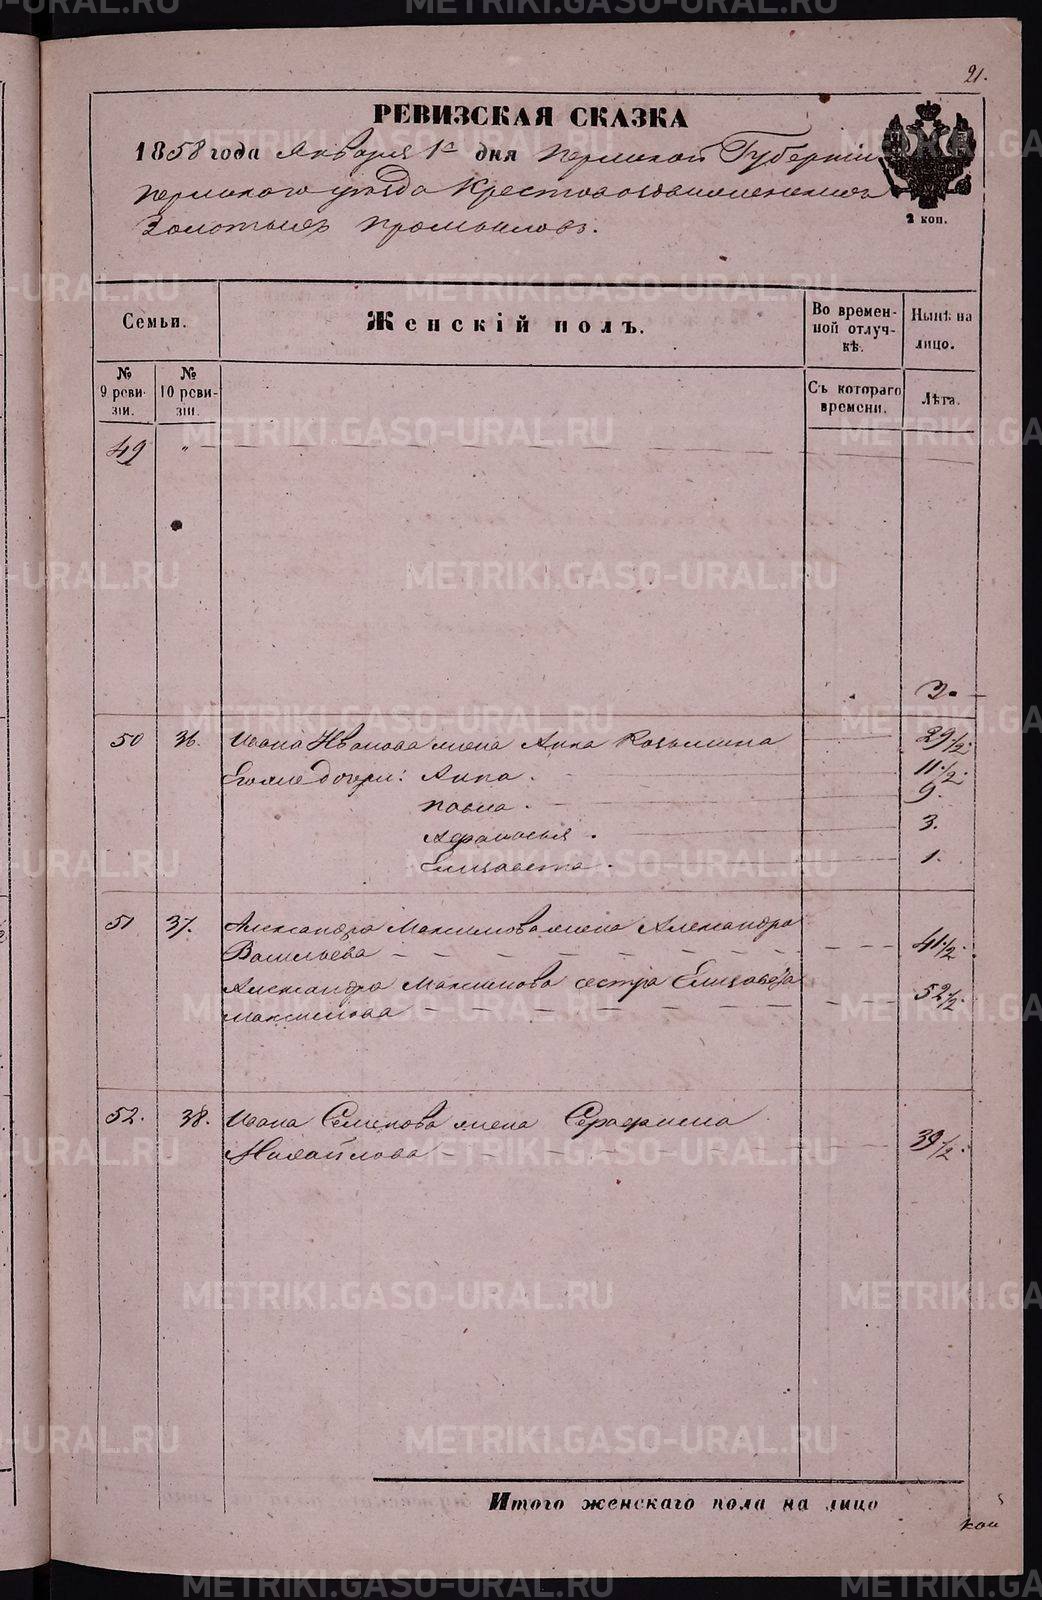 21.
РЕВИЗСКАЯ СКАЗКА
1858 года Января 1го дня Пермской Губернии
Пермского уезда Крестовоздвиженских
Золотых промыслов.
2 коп.
Семьи.
Женскій полъ.
Во времен-
ной отлуч-
кѣ.
Нынѣ на
лицо.
№
9 реви-
зіи.
№
10 реви-
зіи.
Съ котораго
времени.
Лѣта.
49 "
3.
50 36. Ивана Иванова жена Анна Козьмина 29 1/2.
Его же дочери: Анна. 11 1/2.
Павла. 9.
Афанасья. 3.
Елизавета. 1.
51 37. Александра Максимова жена Александра
Васильева 41 1/2.
Александра Максимова сестра Елизавета
Максимова 52 1/2.
52. 38. Ивана Семенова жена Серафима
Михайлова 39 1/2.
Итого женскаго пола на лицо
METRIKI.GASO-URAL.RU